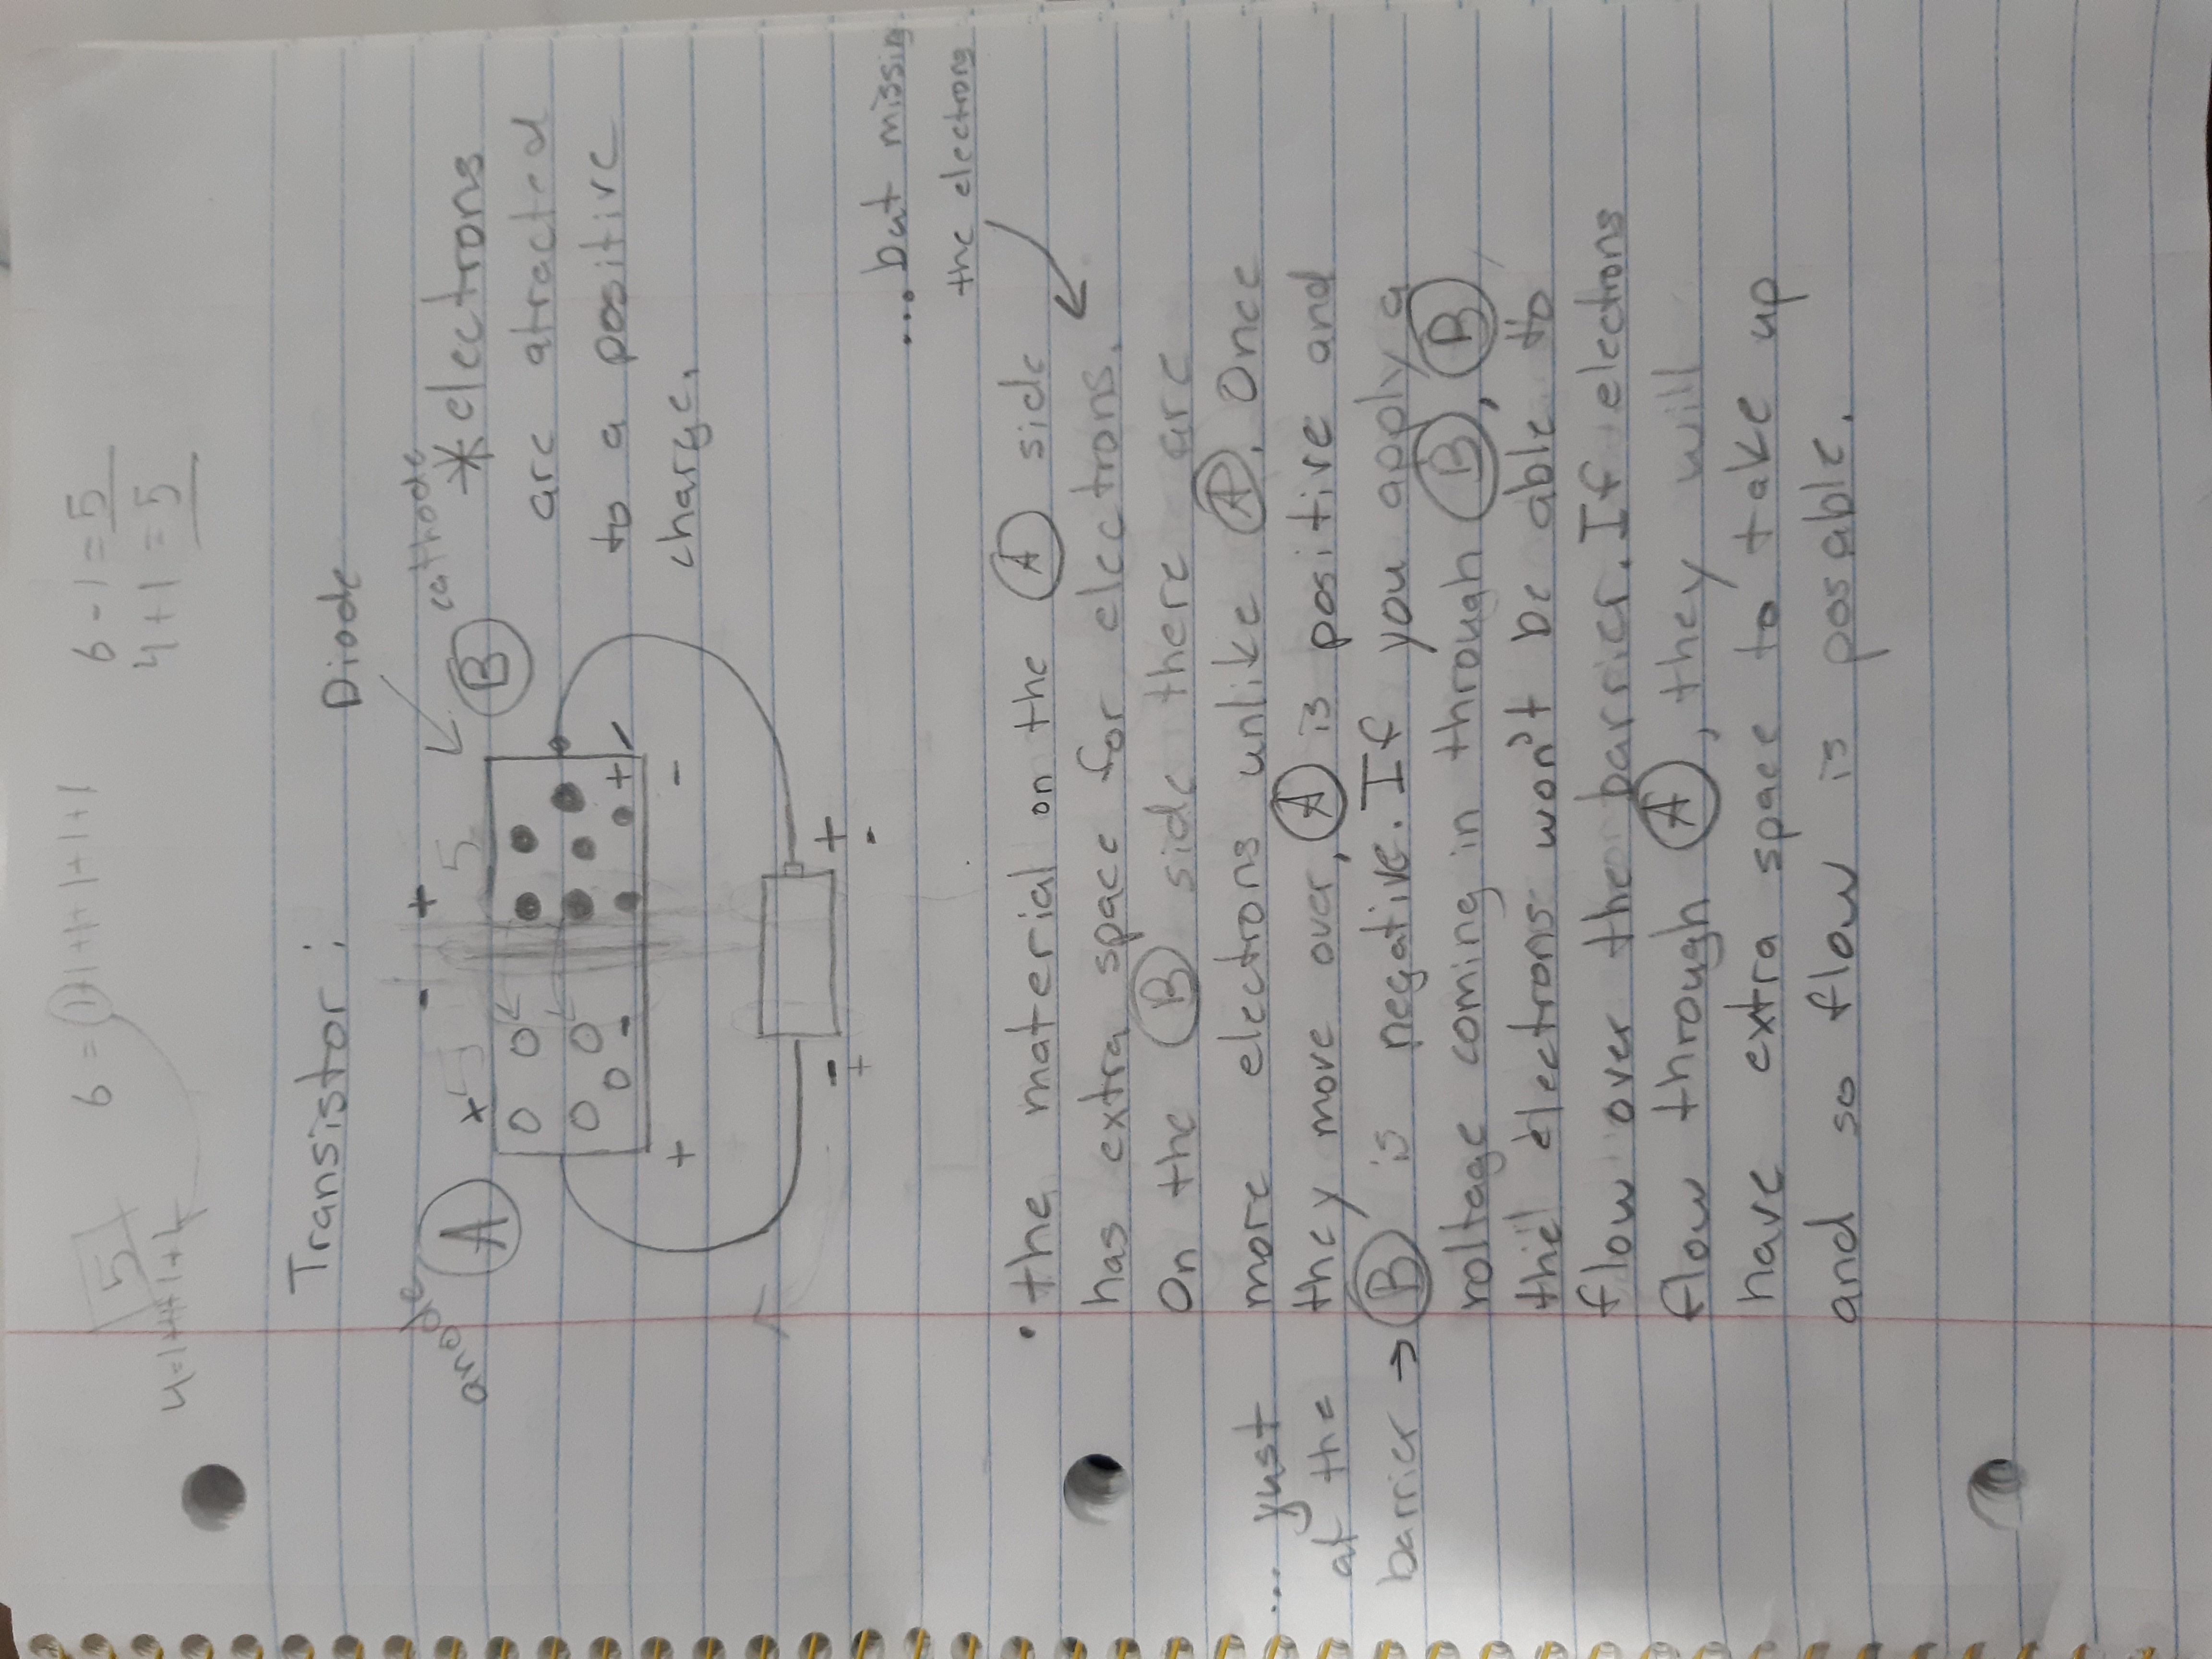 5
6 = 1+1+1+1+1+1
6-1=5
4+1=5
Transistor:
Diode
anode
A
- +
+ 5 5
B
cathode
*electrons
are atracted
to a positive
charge.
- + -
+ -
- +
+ -
...but missing
the electrons
• the material on the A side
has extra space for electrons.
On the B side there are
more electrons unlike A. Once
they move over, A is positive and
... just
at the
barrier →
B is negative. If you apply a
voltage coming in through B, B
the electrons won't be able to
flow over the barrier. If electrons
flow through A, they will
have extra space to take up
and so flow is posable.